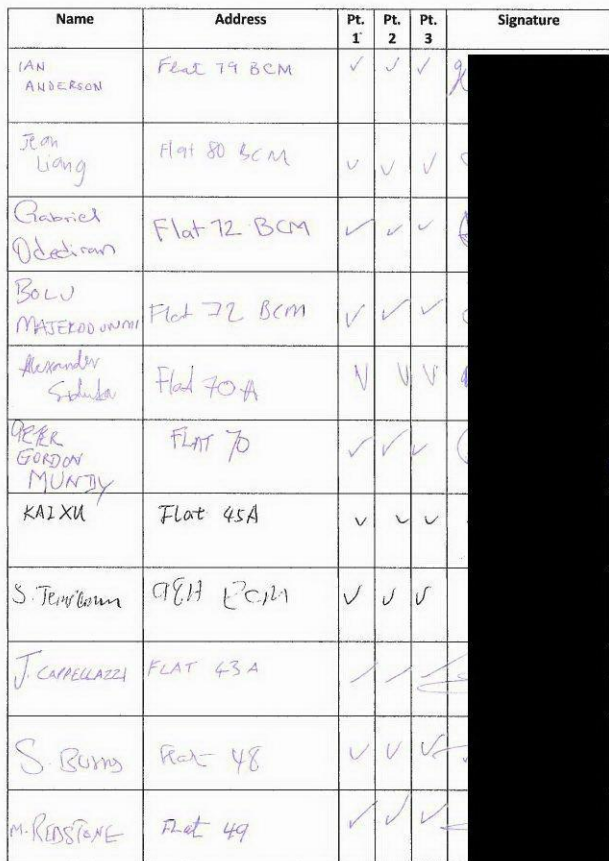 Name Address Pt. 1 Pt. 2 Pt. 3 Signature
IAN ANDERSON Flat 79 BCM ✓ ✓ ✓
Jean Liang Flat 80 BCM ✓ ✓ ✓
Gabriel Odediran Flat 72 BCM ✓ ✓ ✓
BOLU MAJEKODUNMI Flat 72 BCM ✓ ✓ ✓
Alexander Flat 70A ✓ ✓ ✓
PETER GORDON MUNDY FLAT 70 ✓ ✓ ✓
KAI XU Flat 45A ✓ ✓ ✓
S. ✓ ✓ ✓
J. CAPPELLAZZI FLAT 43A ✓ ✓ ✓
S. Flat 48 ✓ ✓ ✓
M. REDSTONE Flat 49 ✓ ✓ ✓